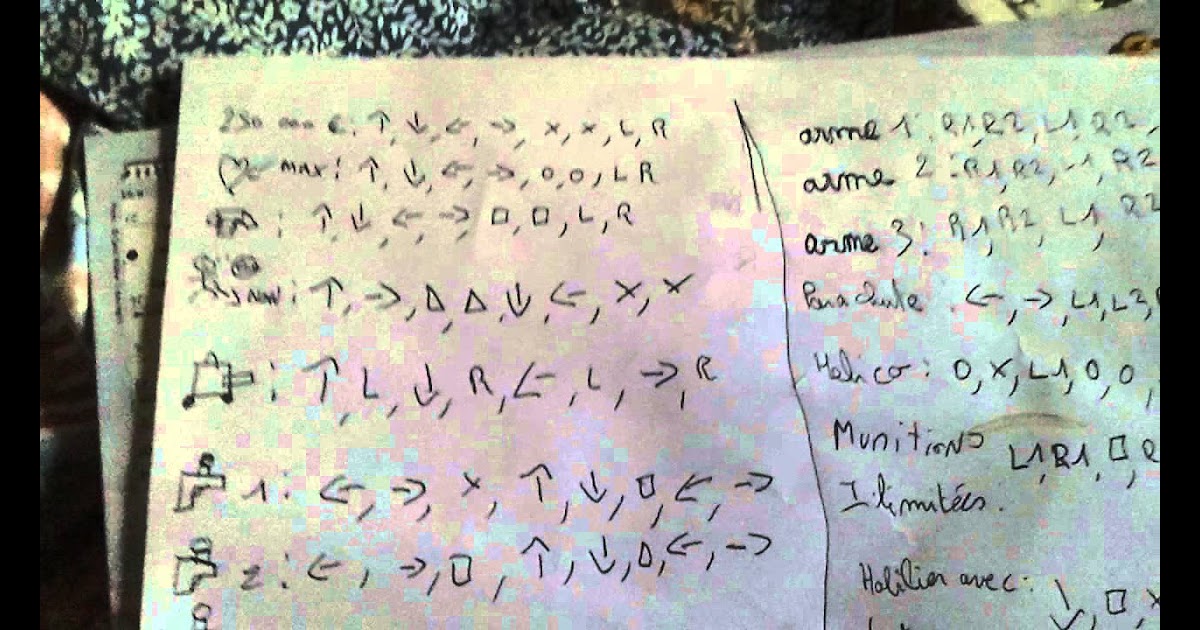 250 000 €: ↑, ↓, ←, →, x, x, L, R
max: ↑, ↓, ←, →, O, O, L R
: ↑, ↓, ←, → □, □, L, R
: ↑, →, Δ, Δ, ↓, ←, x, x
: ↑, L, ↓, R, ←, L, →, R
1: ←, →, x, ↑, ↓, □, ←, →
2: ←, →, □, ↑, ↓, Δ, ←, →
arme 1: R1, R2, L1, R2,
arme 2: R1, R2, L1, R2
arme 3: R1, R2, L1, R2
Parachute ←, →, L1, L2,
Helico: O, X, L1, O, O,
Munitions L1, R1, □, R
Ilimitées:
Habiller avec:
↓, □, x